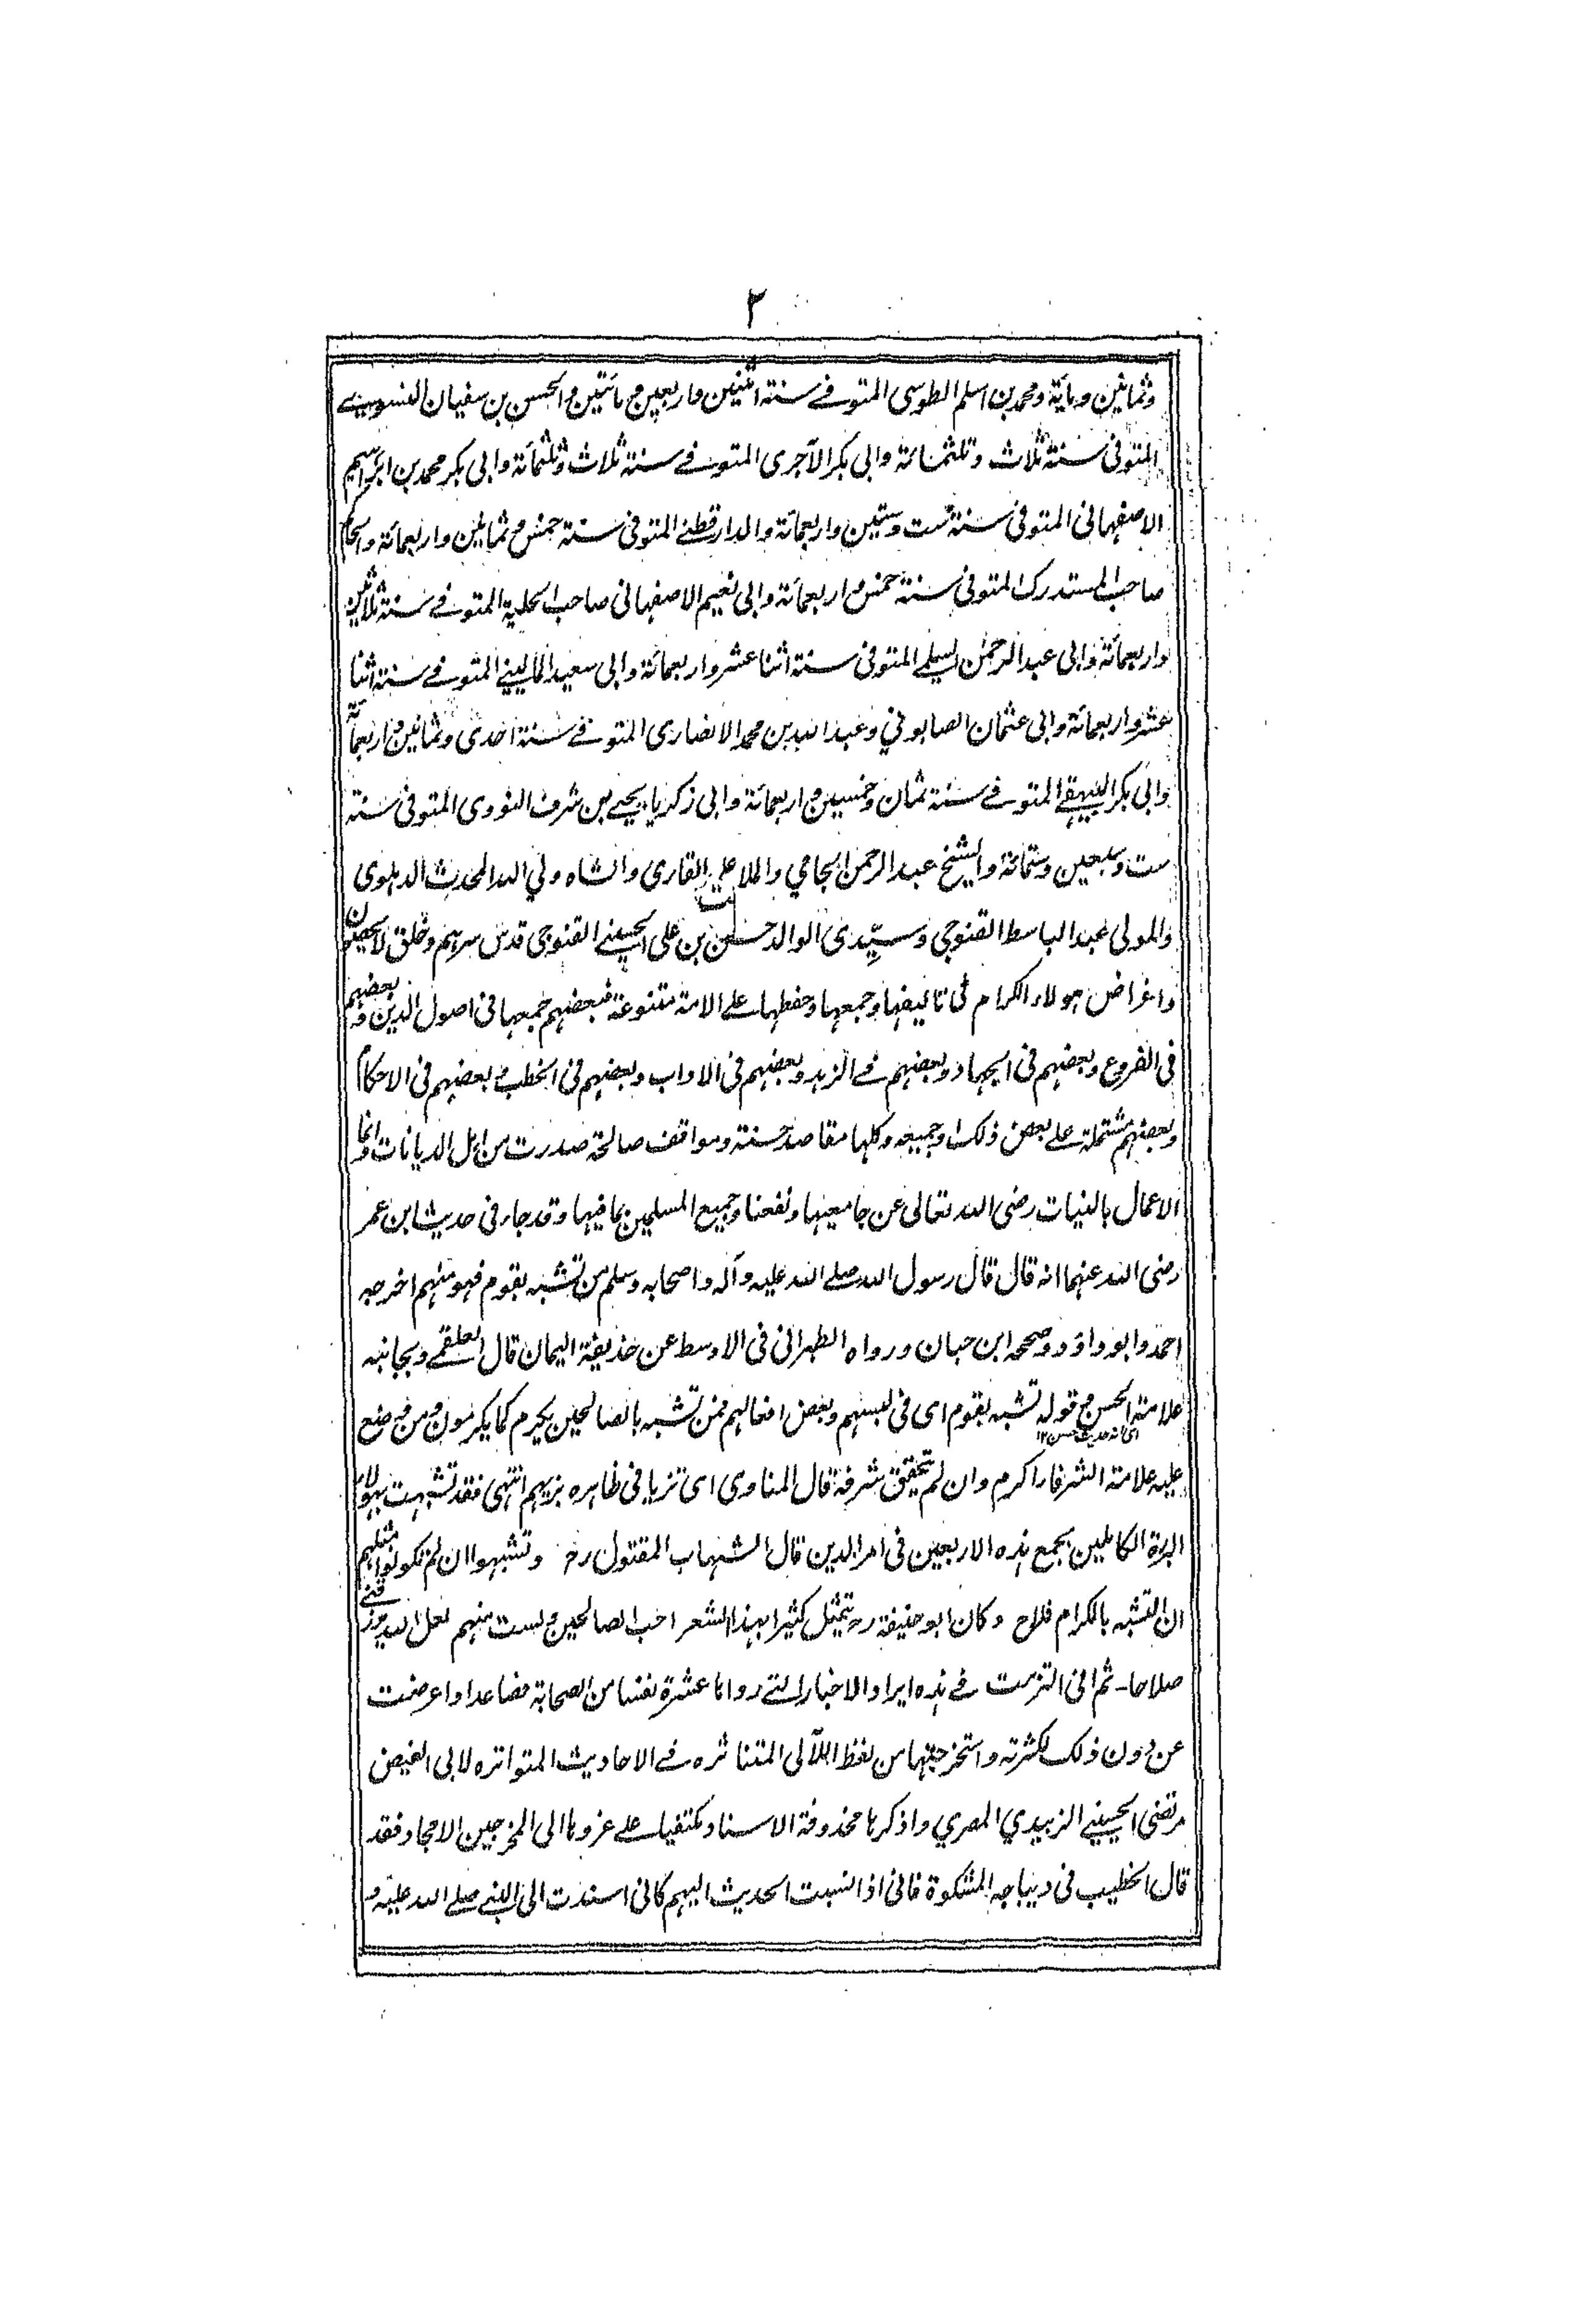 ٣
وثمانين وماية ومحمد بن اسلم الطوسى المتوفے سنة اثنين واربعين ومائتين والحسن بن سفيان النسوى
المتوفى سنة ثلاث وثلثمائة وابى بكر الآجرى المتوفے سنة ثلاث وثلثمائة وابى بكر محمد بن ابراهيم
الاصفهانى المتوفى سنة ست وستين واربعمائة والدارقطنے المتوفى سنة خمس وثمانين واربعمائة والحاكم
صاحب المستدرك المتوفى سنة خمس واربعمائة وابى نعيم الاصفهانى صاحب الحلية المتوفے سنة ثلاثين
واربعمائة وابى عبد الرحمن السلمے المتوفى سنة اثنا عشر واربعمائة وابى سعيد المالينے المتوفے سنة اثنا
عشر واربعمائة وابى عثمان الصابوني وعبد الله بن محمد الانصارى المتوفے سنة احدى وثمانين واربعمائة
وابى بكر البيهقے المتوفے سنة ثمان وخمسين واربعمائة وابى زكريا يحيے بن شرف النووى المتوفى سنة
ست وسبعين وستمائة والشيخ عبد الرحمن الجامي والملا علي القارى والشاه ولي الله المحدث الدهلوى
والمولى عبد الباسط القنوجى وسيدى الوالد حسن بن على الحسينے القنوجى قدس سرهم وخلق لا يحصون
واغراض هولاء الكرام فى تاليفها وجمعها وحفظها على الامة متنوعة فبعضهم جمعها فى اصول الدين وبعضهم
فى الفروع وبعضهم فى الجهاد وبعضهم فے الزهد وبعضهم فى الاداب وبعضهم فى الخطب وبعضهم فى الاحكام
وبعضهم مشتملة على بعض ذلك او جميعه وكلها مقاصد حسنة ومواقف صالحة صدرت من اهل الديانات وانما
الاعمال بالنيات رضى الله تعالى عن جامعيها ونفعنا وجميع المسلمين بما فيها وقد جاء فى حديث ابن عمر
رضى الله عنهما انه قال قال رسول الله صلے الله عليه وآله واصحابه وسلم من تشبه بقوم فهو منهم اخرجه
احمد وابو داؤد وصححه ابن حبان ورواه الطبرانى فى الاوسط عن حذيفة اليمان قال العلقمے وبجانبه
علامة الحسن وقوله تشبه بقوم اى فى لبسهم وبعض افعالهم فمن تشبه بالصالحين يكرم كما يكرمون ومن وضع
اى انه حديث حسن ١٢
عليه علامة الشرفاء اكرم وان لم يتحقق شرفة قال المناوى اى تزيا فى ظاهره بزيهم انتهى فقد تشبهت بهولاء
البررة الكاملين بجمع هذه الاربعين فى امر الدين قال الشهاب المقتول رح وتشبهوا ان لم تكونوا مثلهم
ان التشبه بالكرام فلاح وكان ابو حنيفة رح يتمثل كثيرا بهذا الشعر احب الصالحين ولست منهم لعل الله يرزقنے
صلاحا۔ ثم انى التزمت فے هذه ايراد الاخبار التے رواها عشرة نفسا من الصحابة فصاعدا واعرضت
عن دون ذلك لكثرته واستخرجتها من لفظ اللآلى المتناثره فے الاحاديث المتواتره لابى الفيض
مرتضى الحسينے الزبيدي المصري واذكرها محذوفة الاسناد مكتفيا علے عزوها الى المخرجين الامجاد فقد
قال الخطيب فى ديباجه المشكوة فانى اذا نسبت الحديث اليهم كانى اسندت الى النبے صلے الله عليه و